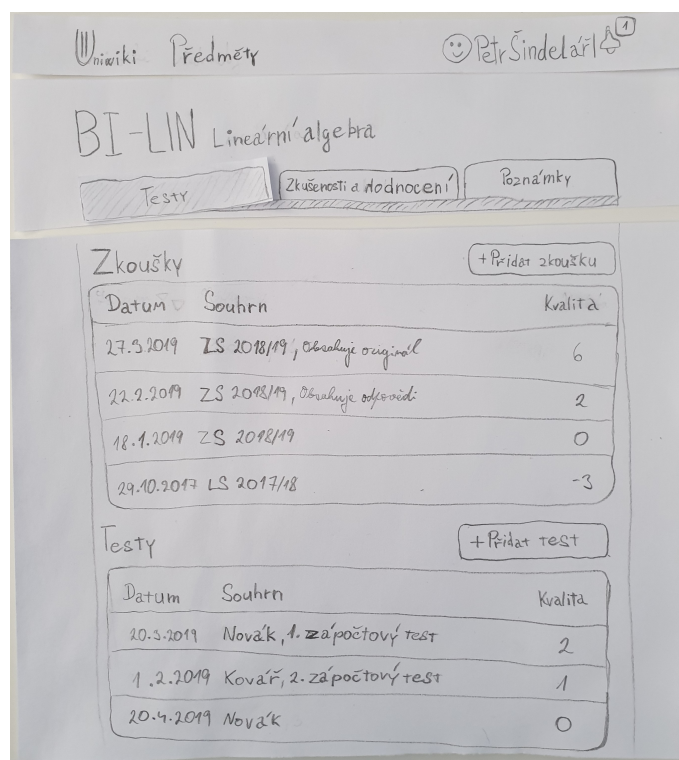 Uniwiki Předměty Petr Šindelář 1
BI-LIN Lineární algebra
Testy Zkušenosti a Hodnocení Poznámky
Zkoušky +Přidat zkoušku
Datum Souhrn Kvalita
27.5.2019 ZS 2018/19, Obsahuje originál 6
22.2.2019 ZS 2018/19, Obsahuje odpovědi 2
18.1.2019 ZS 2018/19 0
29.10.2017 LS 2017/18 -3
Testy +Přidat test
Datum Souhrn Kvalita
20.5.2019 Novák, 1. zápočtový test 2
1.2.2019 Kovář, 2. zápočtový test 1
20.4.2019 Novák 0